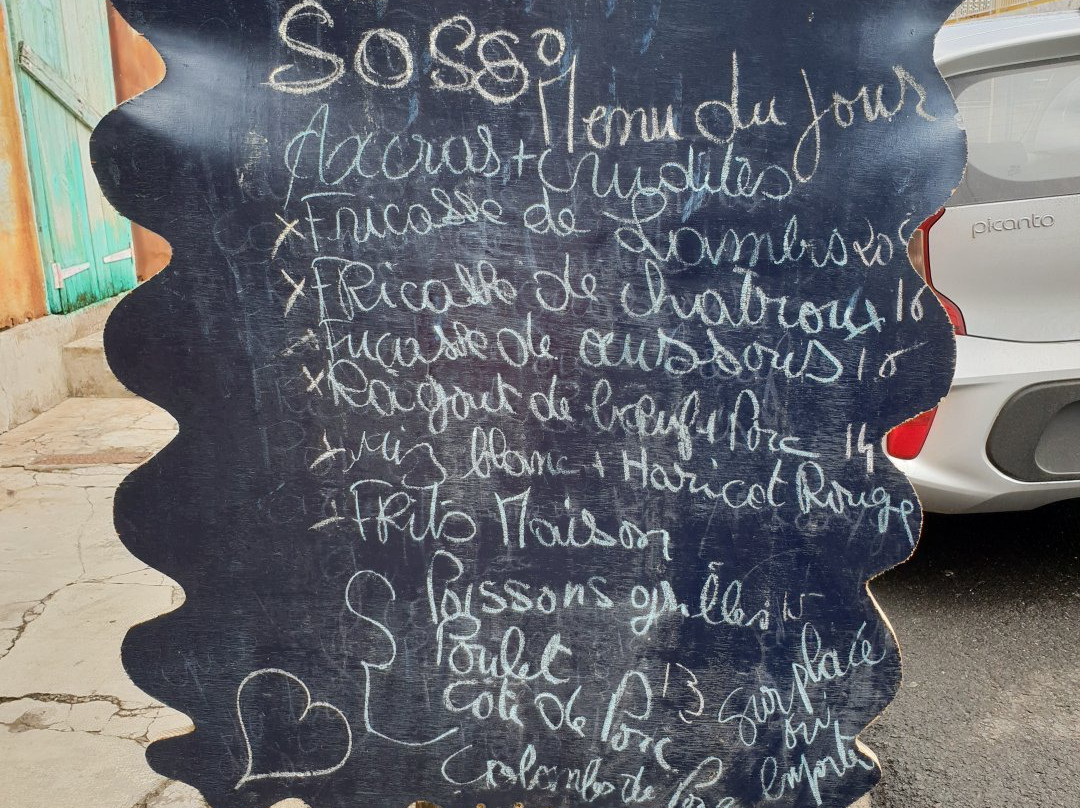 Sosso
Menu du jour
Axcras + Crudités
x Fricasse de Lambis 20 €
x FRicasse de chatrous 16
Fricassee de ourssons 15
x Ragout de bœuf + Porc 14
+ Riz blanc + Haricot Rouge
- FRits Maison
Poissons grillés 15
Poulet
Cote de Porc 13
Colombo de Porc
Sur place
ou
emporte
picanto